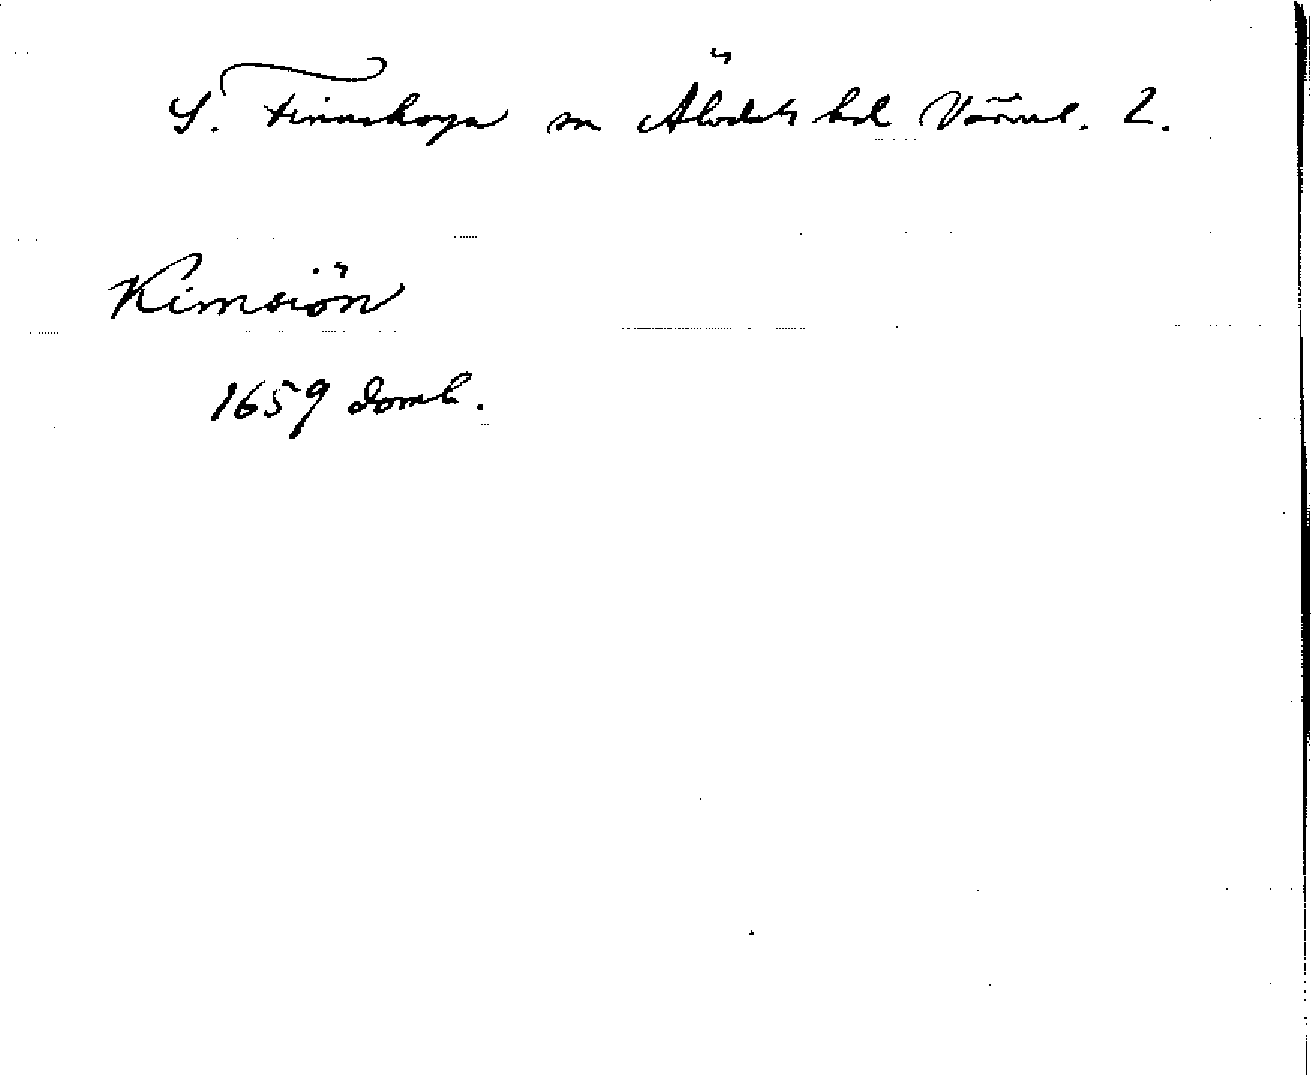 S. Finnskoga sn Älvdals hd Värml. L.
Kimsiön
1659 domb.